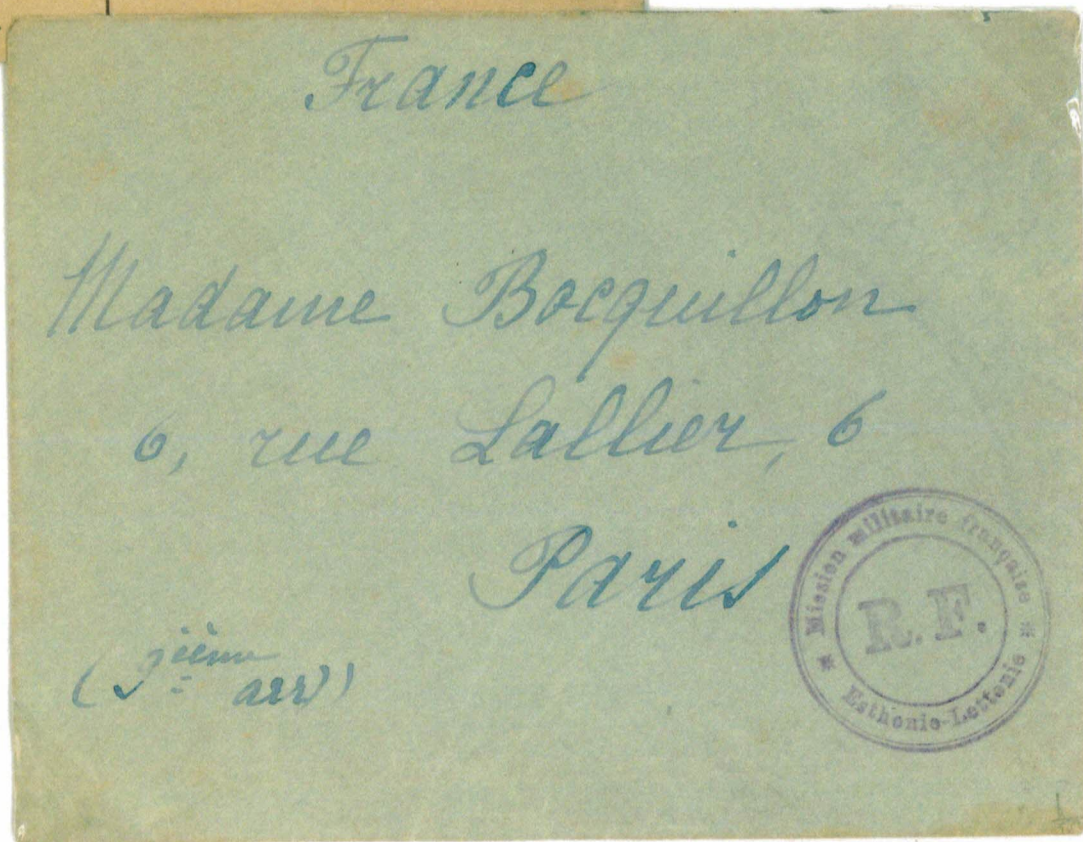 France
Madame Bocquillon
6, rue Lallier, 6
Paris
(9ième arr)
* Mission militaire française *
R.F.
Esthonie-Lettonie